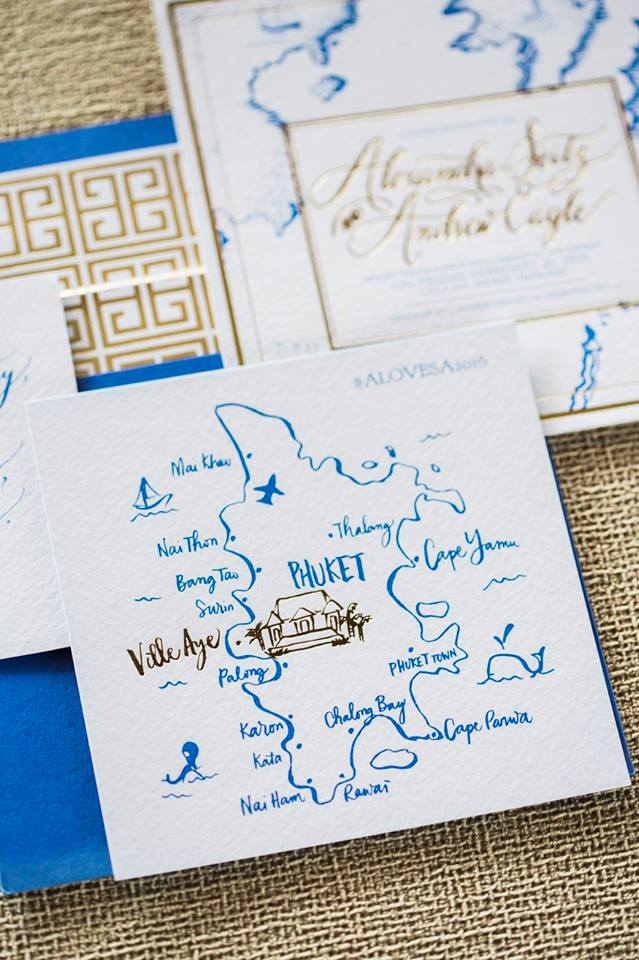 Alexandra Seitz
and
Andrew Cagle
#ALOVESA2016
Mai Khao
Thalang
Nai Thon
Cape Yamu
Bang Tao
PHUKET
Surin
Ville Aye
PHUKET TOWN
Palong
Chalong Bay
Karon
Cape Panwa
Kata
Nai Harn
Rawai